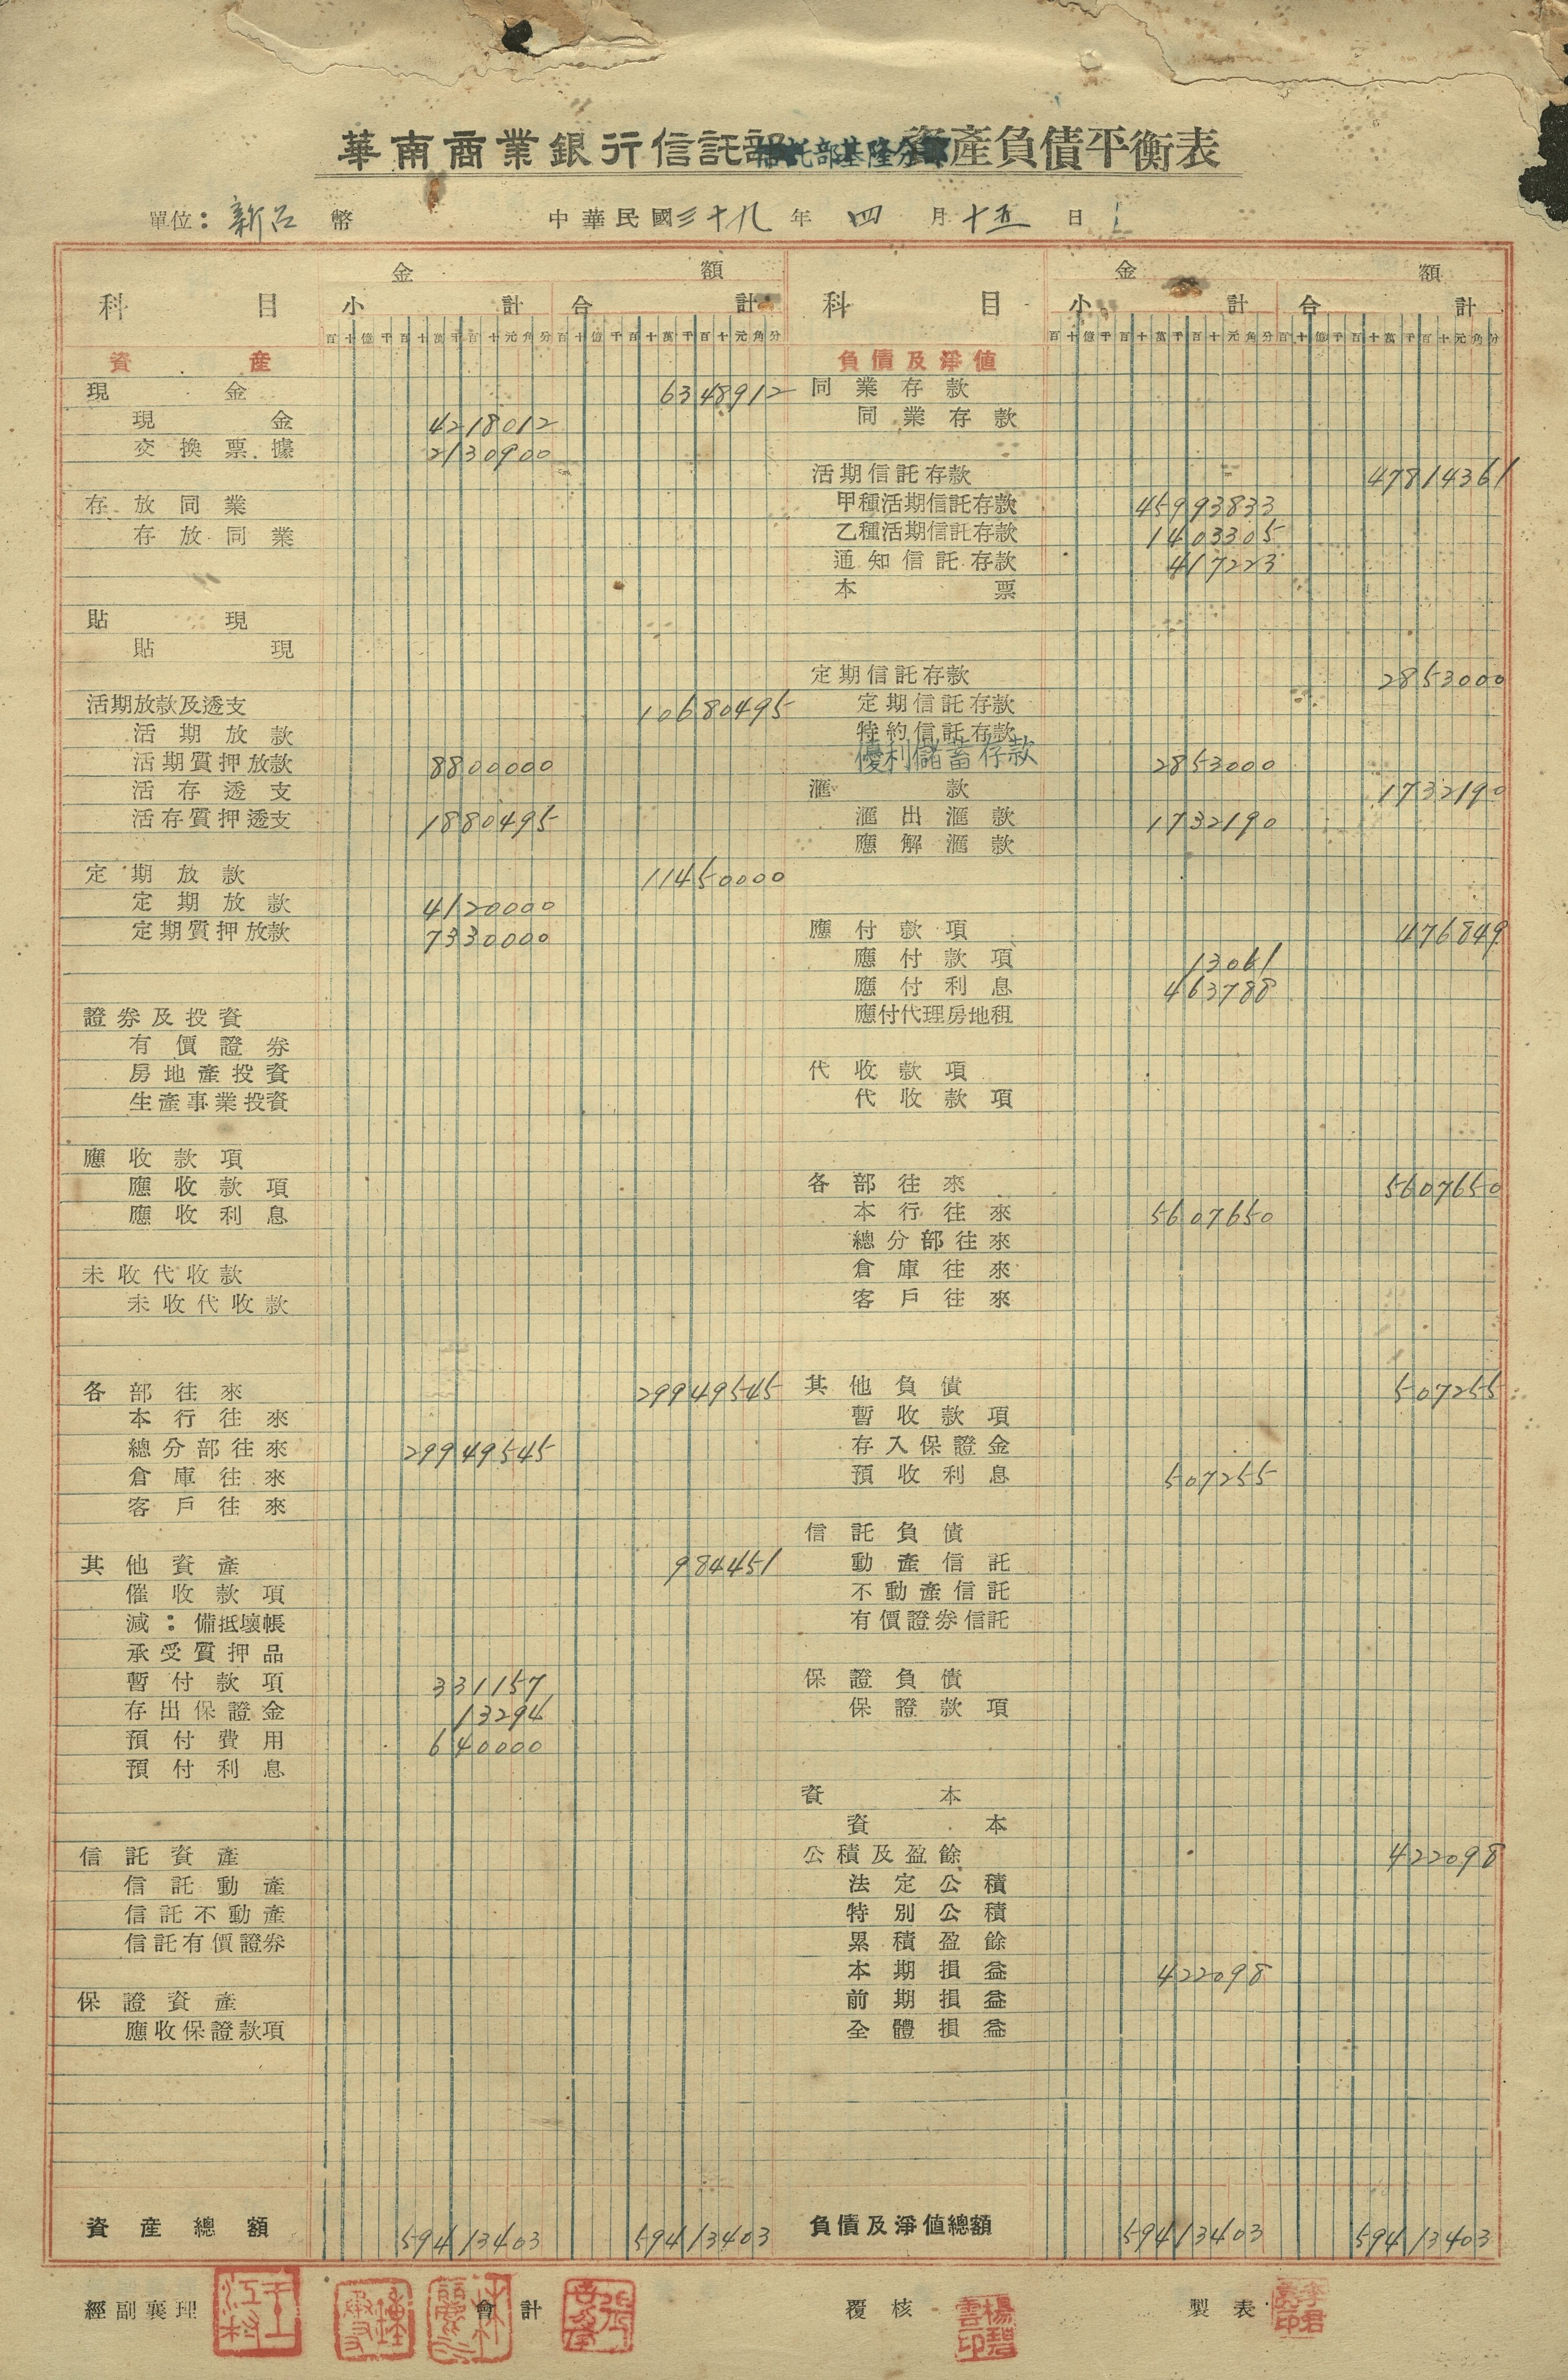 華南商業銀行信託部 信託部基隆分部 資產負債平衡表
單位：新台幣 中華民國三十九年四月十五日
科目 金額 科目 金額
小計 合計 小計 合計
百十億千百十萬千百十元角分 百十億千百十萬千百十元角分 百十億千百十萬千百十元角分 百十億千百十萬千百十元角分
資產
現金 6348912
現金 4218012
交換票據 2130900
存放同業
存放同業
貼現
貼現
活期放款及透支 10680495
活期放款
活期質押放款 8800000
活存透支
活存質押透支 1880495
定期放款 11450000
定期放款 4120000
定期質押放款 7330000
證券及投資
有價證券
房地產投資
生產事業投資
應收款項
應收款項
應收利息
未收代收款
未收代收款
各部往來 29949545
本行往來
總分部往來 29949545
倉庫往來
客戶往來
其他資產 984451
催收款項
減：備抵壞帳
承受質押品
暫付款項 331157
存出保證金 13294
預付費用 640000
預付利息
信託資產
信託動產
信託不動產
信託有價證券
保證資產
應收保證款項
資產總額 59413403 59413403
負債及淨值
同業存款
同業存款
活期信託存款 47814361
甲種活期信託存款 45993833
乙種活期信託存款 1403305
通知信託存款 417223
本票
定期信託存款 2853000
定期信託存款
特約信託存款
優利儲蓄存款 2853000
滙款 1732190
滙出滙款 1732190
應解滙款
應付款項 476849
應付款項 13061
應付利息 463788
應付代理房地租
代收款項
代收款項
各部往來 5607650
本行往來 5607650
總分部往來
倉庫往來
客戶往來
其他負債 507255
暫收款項
存入保證金
預收利息 507255
信託負債
動產信託
不動產信託
有價證券信託
保證負債
保證款項
資本
資本
公積及盈餘 422098
法定公積
特別公積
累積盈餘
本期損益 422098
前期損益
全體損益
負債及淨值總額 59413403 59413403
經副襄理 會計 覆核 楊碧雲印 製表